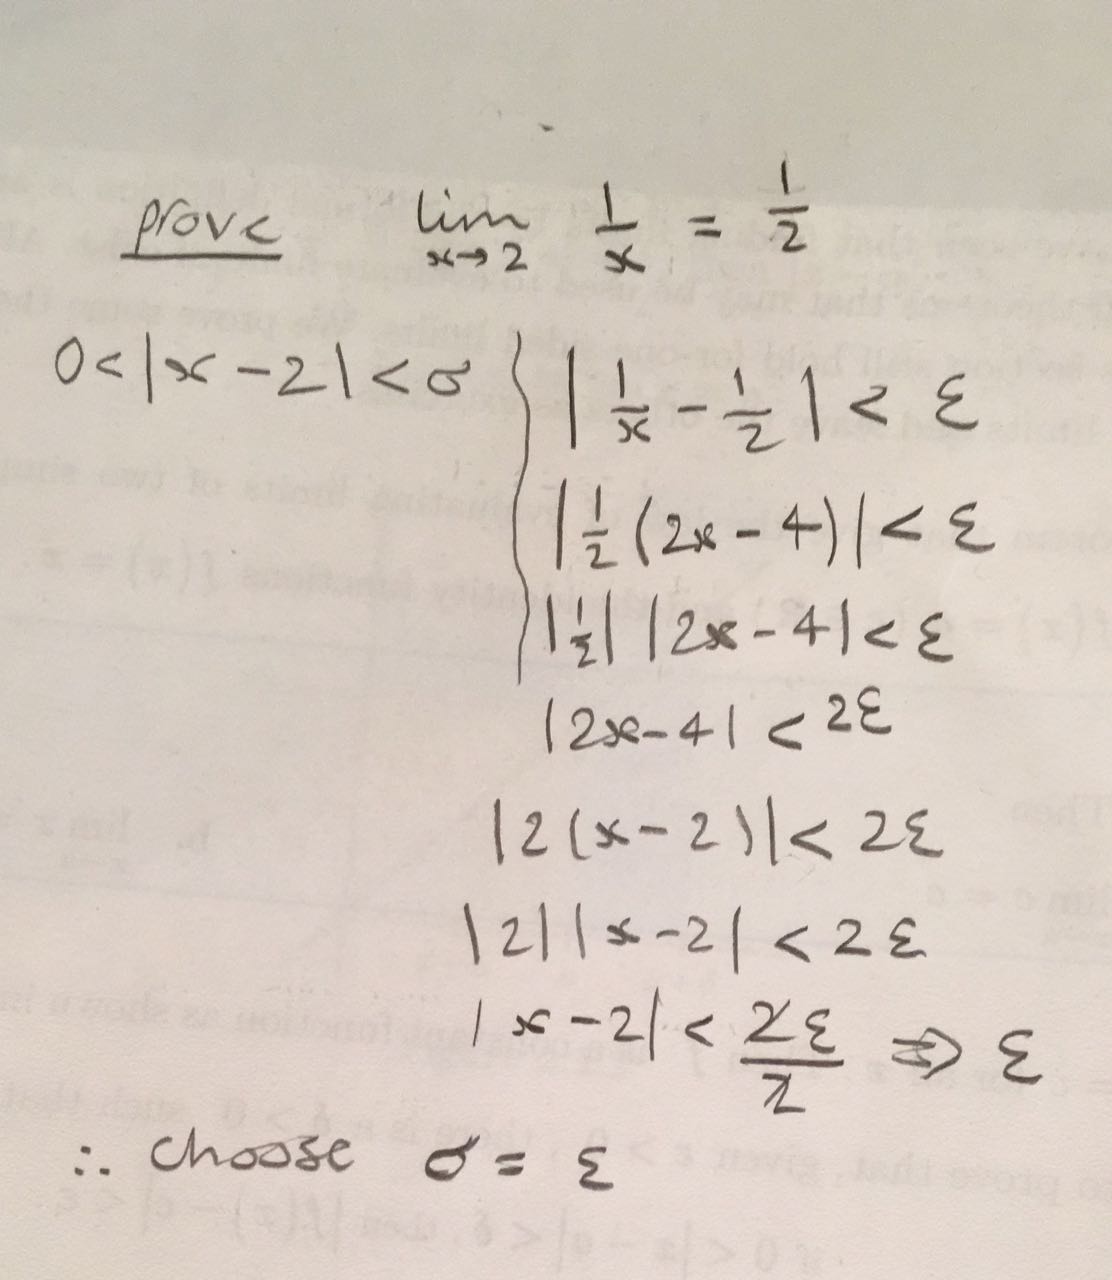 prove lim x→2 1/x = 1/2
0<|x-2|<σ |1/x - 1/2| < ε
|1/2 (2x-4)| < ε
|1/2| |2x-4| < ε
|2x-4| < 2ε
|2(x-2)| < 2ε
|2| |x-2| < 2ε
|x-2| < 2ε/2 ⇒ ε
∴ choose σ = ε